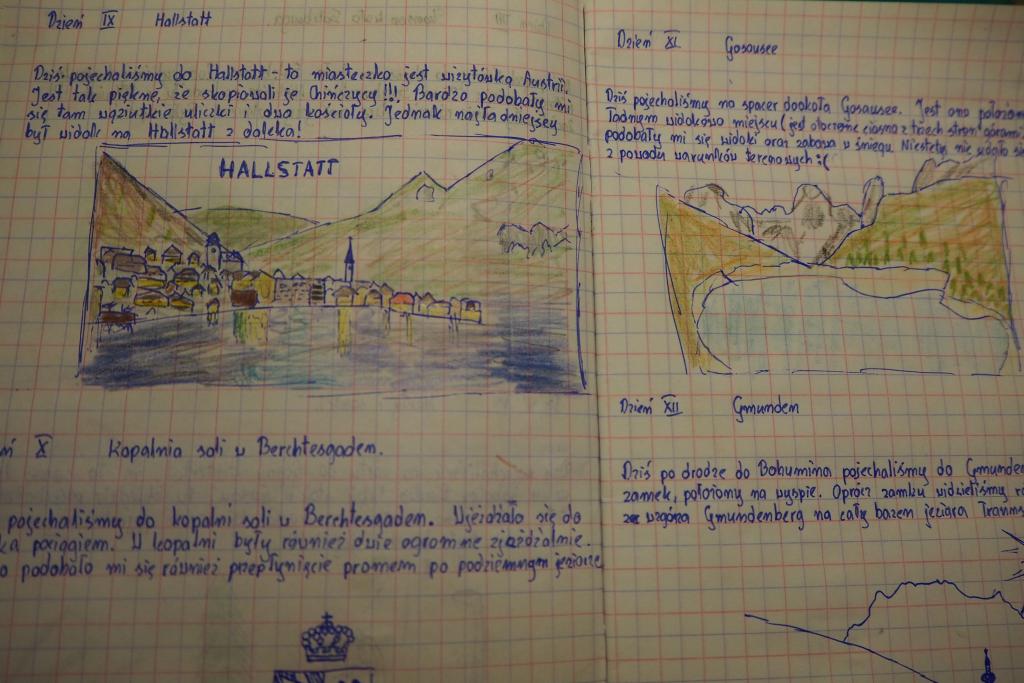 Dzień IX Hallstatt
Dziś pojechaliśmy do Hallstatt - to miasteczko jest wizytówką Austrii.
Jest tak piękne, że skopiowali je Chińczycy !!! Bardzo podobały mi
się tam wąziutkie uliczki i dwa kościoły. Jednak najładniejszy
był widok na Hallstatt z daleka!
HALLSTATT
eń X Kopalnia soli w Berchtesgaden.
pojechaliśmy do kopalni soli w Berchtesgadem. Wjeżdżało się do
ka pociągiem. W kopalni były również dwie ogromne zjeżdżalnie.
o podobało mi się również przepłynięcie promem po podziemnym jeziorze
Dzień XI Gosausee
Dziś pojechaliśmy na spacer dookoła Gosausee. Jest ono położon
ładnym widokowo miejscu (jest otoczone ciasno z trzech stron górami
podobały mi się widoki oraz zabawa w śniegu. Niestety nie udało si
z powodu warunków terenowych :(
Dzień XII Gmunden
Dziś po drodze do Bohumina pojechaliśmy do Gmunde
zamek, położony na wyspie. Oprócz zamku widzieliśmy
wzgórza Gmundenberg na cały basem jeziora Traun